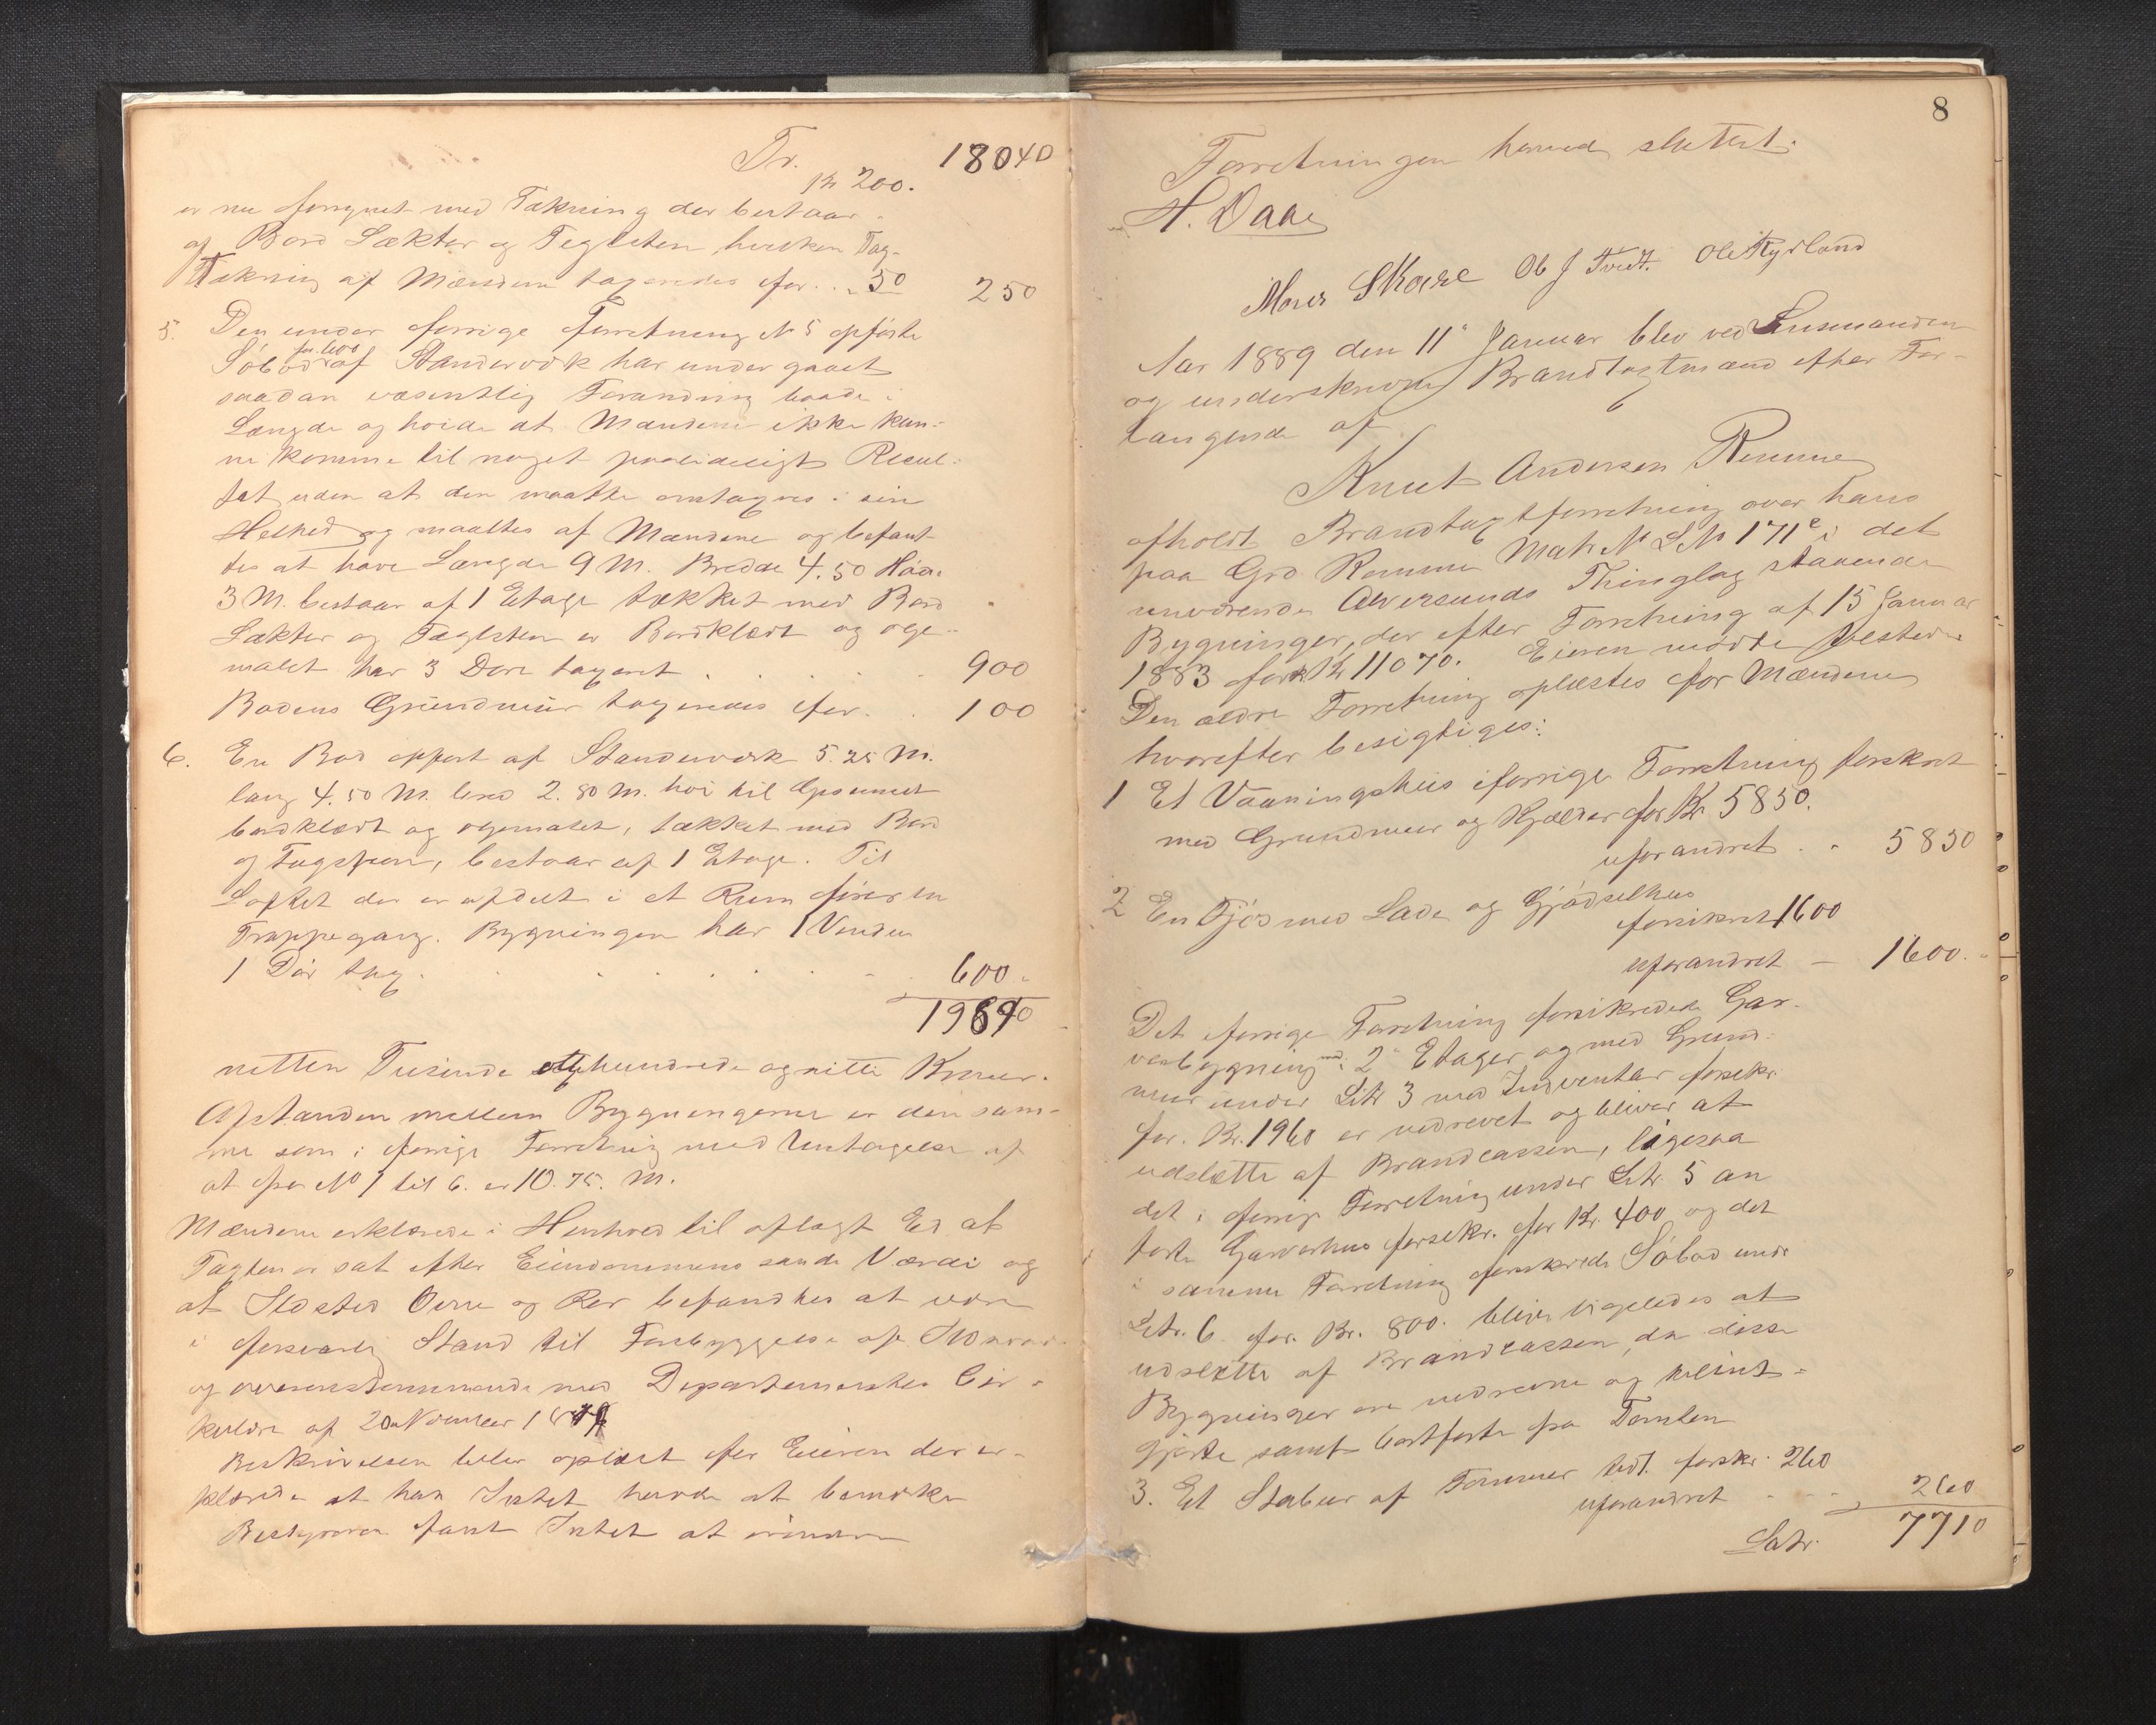 Tr. 18040
Kr 200.
er nu forsynet med Tækning der bestaar
af Bord Lækter og Teglsten, hvilken Tag-
Tækning af Mændene taxeredes for . . 50 250
5. Den under forrige Forretning No 5 opførte
Søbod for 600 af Standerværk har undergaaet
saadan væsentlig Forandring baade i
Længde og høide at Mændene ikke kun-
ne komme til noget paalideligt Resul-
tat, uden at den maatte omtaxeres i sin
Helhed og maaltes af Mændene og befant-
tes at have Længde 9 M. Bredde 4.50 Høide
3 M. bestaar af 1 Etage tækket med Bord
Lækter og Teglsten er Bordklædt og olje-
malet har 3 Døre taxeret . . . . . 900
Bodens Grundmur taxeredes for . . 100
6. En Bod opført af Standerværk 5.25 M.
lang 4.50 M. bred 2. 80 M. høi til Gesimset
bordklædt og oljemalet, tækket med Bord
og Tagspon, bestaar af 1 Etage. Til
Loftet der er afdelt i et Rum fører en
Trappegang. Bygningen har 1 Vindu
1 Dør tax. . . . . . . . 600.
19890
nitten Tusinde otte hundrede og nitti Kroner.
Afstanden mellem Bygningerne er den sam-
me som i forrige Forretning med Undtagelse af
at fra No 1 til 6. er 10.75. M.
Mændene erklærede i Henhold til aflagt Ed at
Taxten er sat efter Eiendommens sande Værdi og
at Ildsted Ovne og Rør befandtes at være
i forsvarlig Stand til Forebyggelse af Ildsvaade
og overensstemmende med Departementets Cir-
kulære af 20 November
Beskrivelsen blev oplæst for Eieren der er-
klærede at han Intet havde at bemærke
Bestyreren fandt Intet at erindre
8
Forretningen hermed sluttet.
H. Daae
Mons Skare Ole J Tveit. Ole Kyrland
Aar 1889 den 11te Januar blev ved Lensmanden
og underskrevne Brandtaxtmænd efter For-
langende af
Knut Andersen Remme
afholdt Brandtaxtforretning over hans
paa Grd Remme Matr No L No 171 e i det
nuværende Alversunds Thinglag staaende
Bygninger, der efter Forretning af 15 Januar
1883 fork. Kr 11070. Eieren mødte tilstede
Den ældre Forretning oplæstes for Mændene
hvorefter besigtiges:
1 Et Vaaningshus i forrige Forretning forsikret
med Grundmur og Kjælder for Kr 5850.
uforandret . . 5850
2 En Fjøs med Lade og Gjødselhus
forsikret 1600
uforandret — 1600. -
Det i forrige Forretning forsikrede Gar-
veribygning med 2 Etager og med Grund-
mur under Litr 3 med Inventar forsikr.
for. Kr. 1960 er nedrevet og bliver at
udslette af Brandcassen, ligesaa
det i forrige Forretning under Litr. 5 an
førte Garverhus forsikr. for Kr. 400 og det
i samme Forretning forsikrede Søbod under
Litr. 6 for. Kr. 800. bliver ligeledes at
udslette af Brandcassen, da disse
Bygninger ere nedrevne og tilint-
gjorte samt bortførte fra Tomten
3. Et Stabur af Tømmer tidl. forsikr. 260
uforandret . . . 260
Latr. 7710